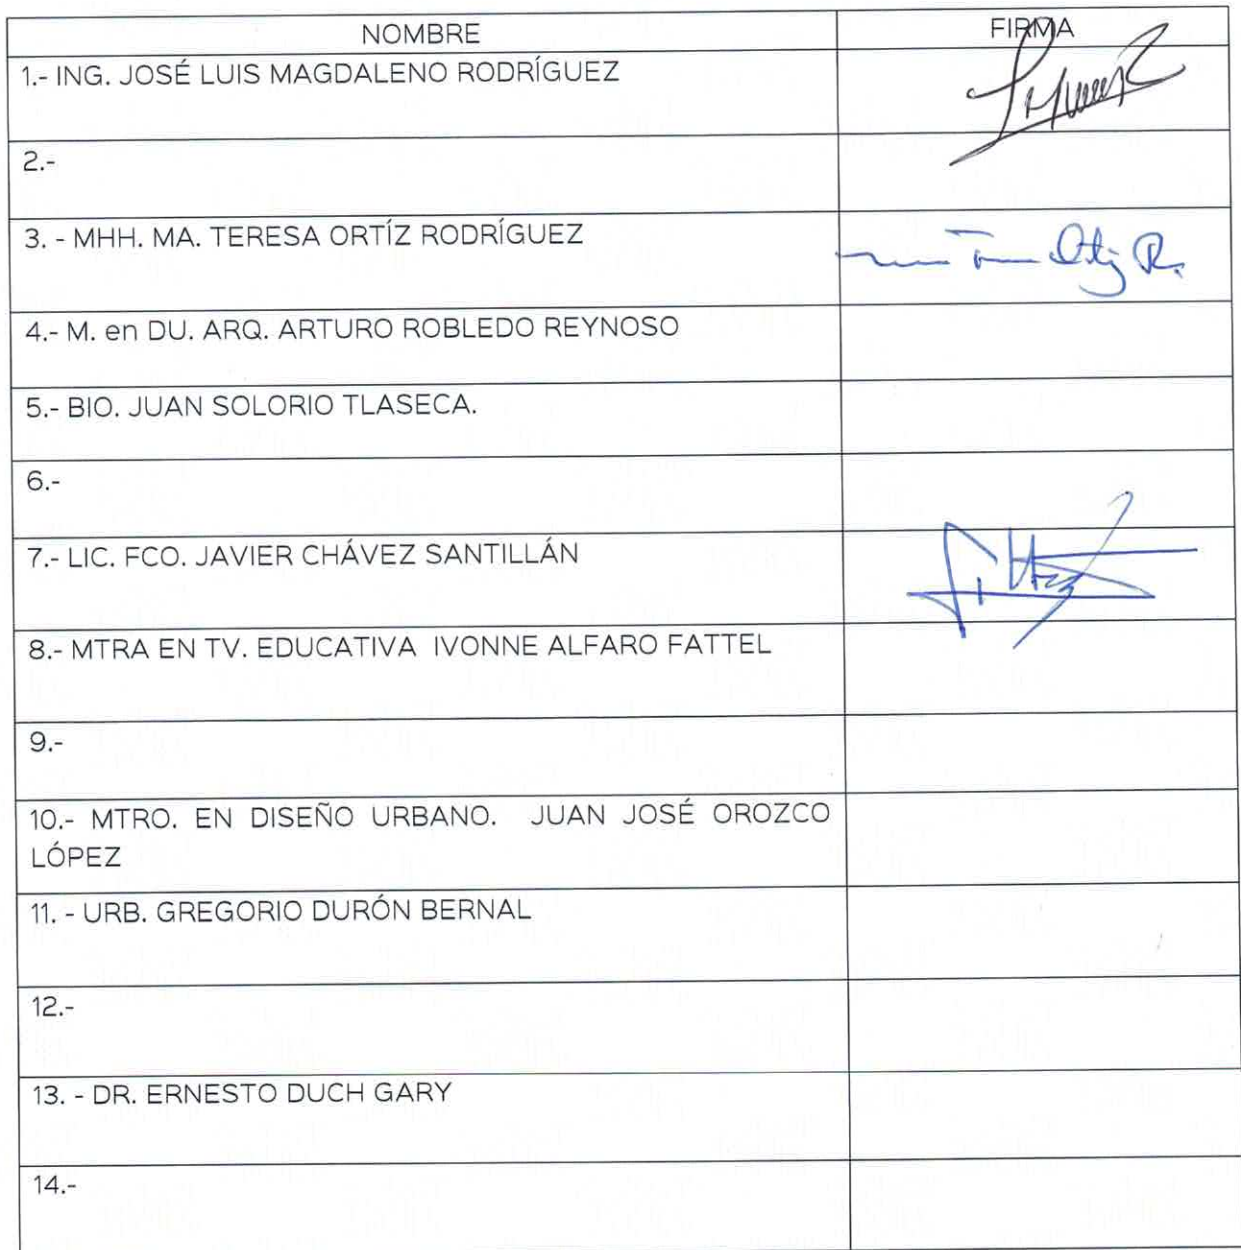 NOMBRE FIRMA
1.- ING. JOSÉ LUIS MAGDALENO RODRÍGUEZ
2.-
3. - MHH. MA. TERESA ORTÍZ RODRÍGUEZ
4.- M. en DU. ARQ. ARTURO ROBLEDO REYNOSO
5.- BIO. JUAN SOLORIO TLASECA.
6.-
7.- LIC. FCO. JAVIER CHÁVEZ SANTILLÁN
8.- MTRA EN TV. EDUCATIVA IVONNE ALFARO FATTEL
9.-
10.- MTRO. EN DISEÑO URBANO. JUAN JOSÉ OROZCO
LÓPEZ
11. - URB. GREGORIO DURÓN BERNAL
12.-
13. - DR. ERNESTO DUCH GARY
14.-